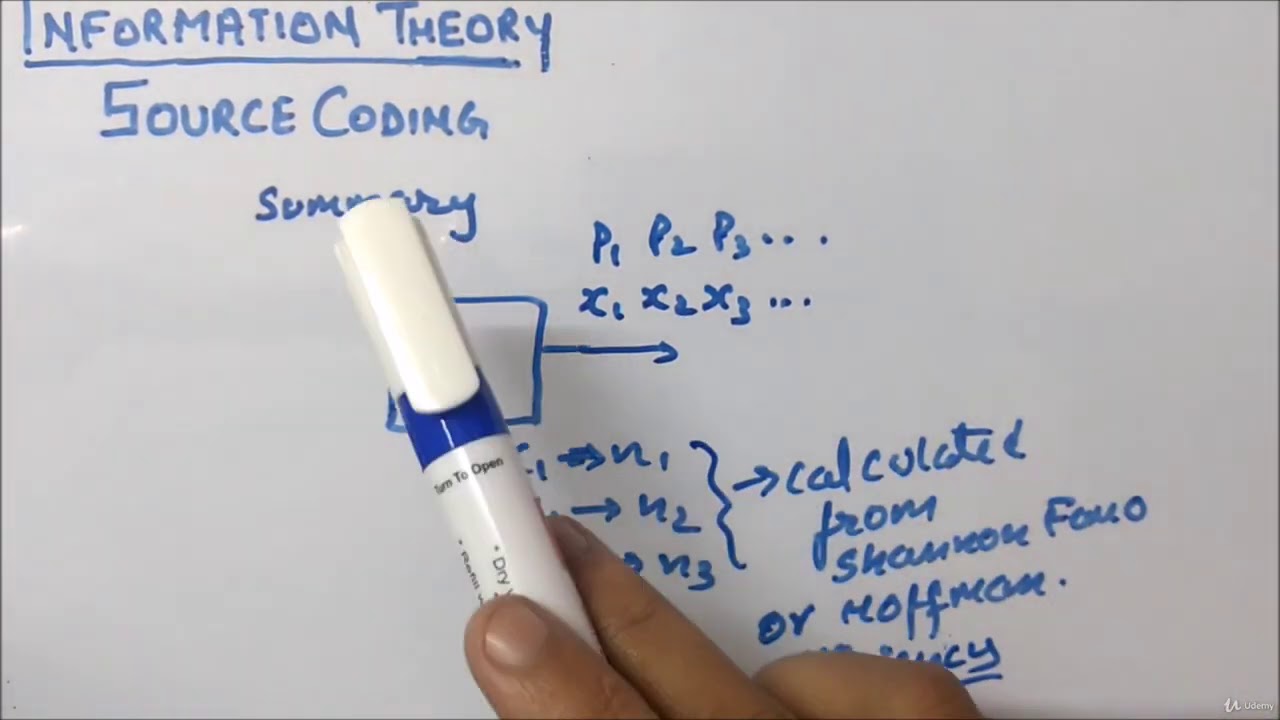 INFORMATION THEORY
SOURCE CODING
Summary
P1 P2 P3 ....
x1 x2 x3 ...
→ n1
→ n2
n3
→ calculated
from
Shannon Fano
or Hoffman.
Turn To Open
• Dry
• Refill
Udemy